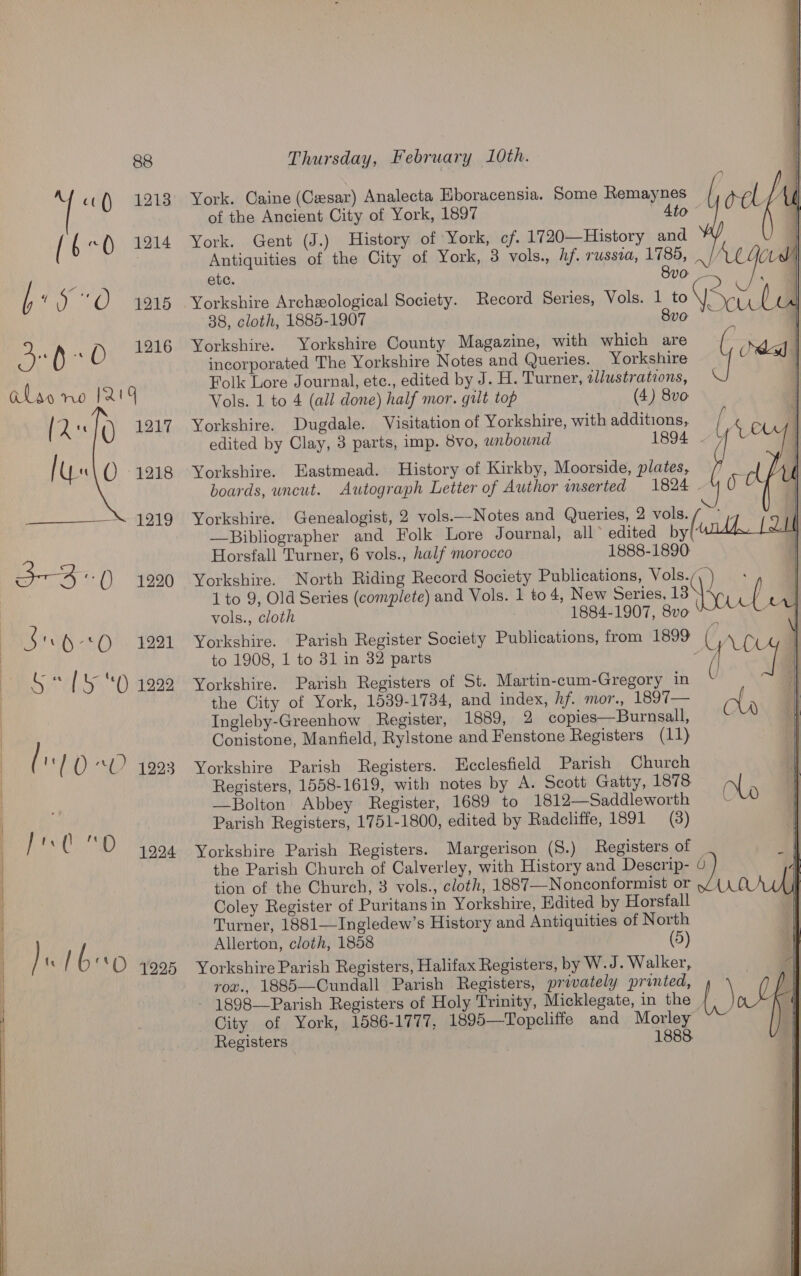 88 Thursday, February 10th.
4 " 0 1213 York. Caine (Cæsar) Analecta Eboracensia. Some Remaynes
of the Ancient City of York, 1897 4to
16 " 0 1214 York. Gent (J.) History of York, cf. 1720—History and
Antiquities of the City of York, 3 vols., hf. russia, 1785,
etc. 8vo
6 " 5 " 0 1215 Yorkshire Archæological Society. Record Series, Vols. 1 to
38, cloth, 1885-1907 8vo
3 " 0 " 0 1216 Yorkshire. Yorkshire County Magazine, with which are
incorporated The Yorkshire Notes and Queries. Yorkshire
Folk Lore Journal, etc., edited by J. H. Turner, illustrations,
also no 1219 Vols. 1 to 4 (all done) half mor. gilt top (4) 8vo
12 " 0 1217 Yorkshire. Dugdale. Visitation of Yorkshire, with additions,
edited by Clay, 3 parts, imp. 8vo, unbound 1894
14 " 0 1218 Yorkshire. Eastmead. History of Kirkby, Moorside, plates,
boards, uncut. Autograph Letter of Author inserted 1824
1219 Yorkshire. Genealogist, 2 vols.—Notes and Queries, 2 vols.
—Bibliographer and Folk Lore Journal, all edited by
Horsfall Turner, 6 vols., half morocco 1888-1890
3 " 3 " 0 1220 Yorkshire. North Riding Record Society Publications, Vols.
1 to 9, Old Series (complete) and Vols. 1 to 4, New Series, 13
vols., cloth 1884-1907, 8vo
3 " 6 " 0 1221 Yorkshire. Parish Register Society Publications, from 1899
to 1908, 1 to 31 in 32 parts
5 " 15 " 0 1222 Yorkshire. Parish Registers of St. Martin-cum-Gregory in
the City of York, 1539-1734, and index, hf. mor., 1897—
Ingleby-Greenhow Register, 1889, 2 copies—Burnsall, do
Conistone, Manfield, Rylstone and Fenstone Registers (11)
1 " 10 " 0 1223 Yorkshire Parish Registers. Ecclesfield Parish Church
Registers, 1558-1619, with notes by A. Scott Gatty, 1878 do
—Bolton Abbey Register, 1689 to 1812—Saddleworth
Parish Registers, 1751-1800, edited by Radcliffe, 1891 (3)
1 " 0 " 0 1224 Yorkshire Parish Registers. Margerison (S.) Registers of
the Parish Church of Calverley, with History and Descrip-
tion of the Church, 3 vols., cloth, 1887—Nonconformist or
Coley Register of Puritans in Yorkshire, Edited by Horsfall
Turner, 1881—Ingledew's History and Antiquities of North
Allerton, cloth, 1858 (5)
1 " 16 " 0 1225 Yorkshire Parish Registers, Halifax Registers, by W.J. Walker,
rox., 1885—Cundall Parish Registers, privately printed,
1898—Parish Registers of Holy Trinity, Micklegate, in the
City of York, 1586-1777, 1895—Topcliffe and Morley
Registers 1888